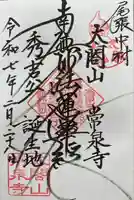 尾張中村
太閤山
常泉寺
南無妙法蓮華経
秀吉公誕生地
令和七年二月二十八日